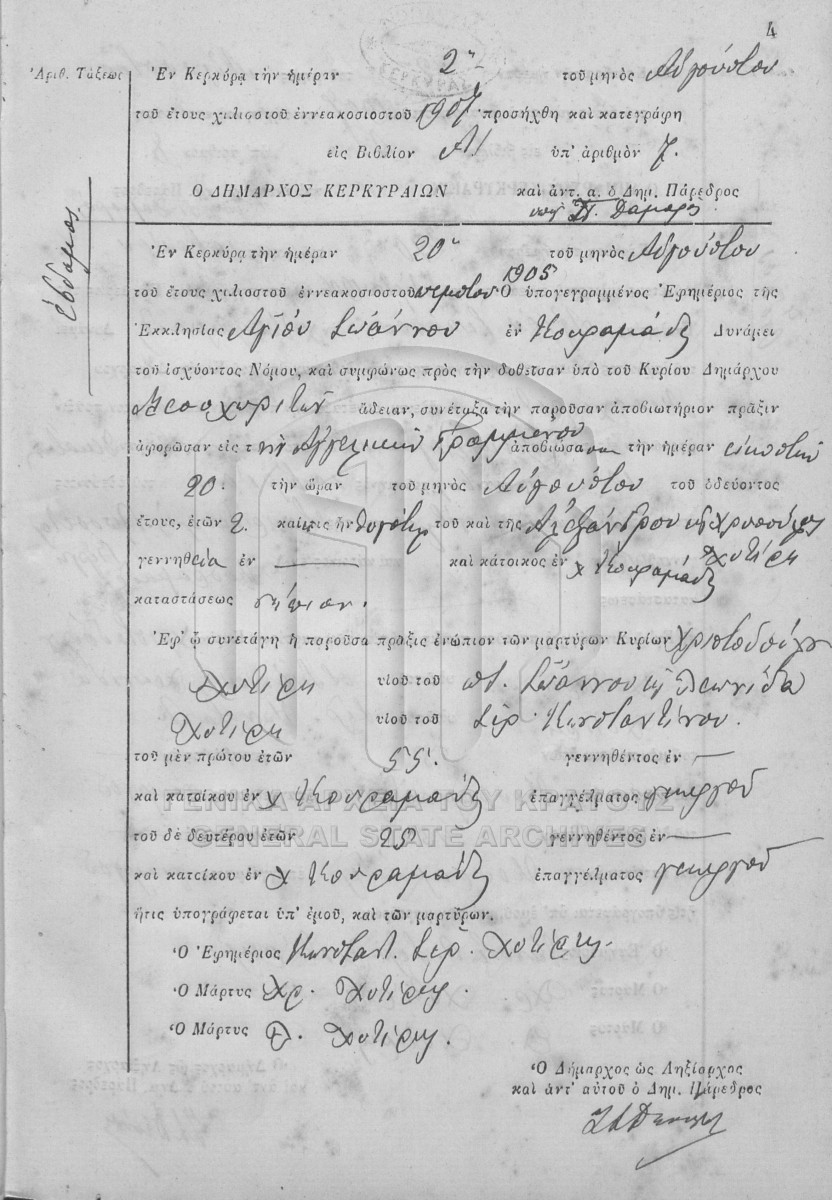 4
Ἀριθ. Τάξεως
ἕβδομος
Ἐν Κερκύρᾳ τὴν ἡμέραν 2αν τοῦ μηνὸς Αὐγούστου
τοῦ ἔτους χιλιοστοῦ ἐννεακοσιοστοῦ 1907 προσήχθη καὶ κατεγράφη
εἰς Βιβλίον Α! ὑπ' ἀριθμὸν 7.
Ο ΔΗΜΑΡΧΟΣ ΚΕΡΚΥΡΑΙΩΝ καὶ ἀντ. α. ὁ Δημ. Πάρεδρος
Ἐν Κερκύρᾳ τὴν ἡμέραν 20ην τοῦ μηνὸς Αὐγούστου
1905
τοῦ ἔτους χιλιοστοῦ ἐννεακοσιοστοῦ πέμπτου Ὁ ὑπογεγραμμένος Ἐφημέριος τῆς
Ἐκκλησίας Ἁγίου Ἰωάννου ἐν Κουραμάδι Δυνάμει
τοῦ ἰσχύοντος Νόμου, καὶ συμφώνως πρὸς τὴν δοθεῖσαν ὑπὸ τοῦ Κυρίου Δημάρχου
Μεσοχωριτῶν ἄδειαν, συνέταξα τὴν παροῦσαν ἀποβιωτήριον πρᾶξιν
ἀφορῶσαν εἰς τὴν Ἀγγελικὴν Γραμμένου ἀποβιώσασαν τὴν ἡμέραν εἰκοστὴν
20: τὴν ὥραν τοῦ μηνὸς Αὐγούστου τοῦ ὁδεύοντος
ἔτους, ἐτῶν 2. καὶ τις ἦν θυγάτηρ τοῦ καὶ τῆς Ἀλεξάνδρου
γεννηθεῖσα ἐν — καὶ κάτοικος ἐν χ Κουραμάδι Χυτίρη
καταστάσεως νήπιον.
Ἐφ' ᾧ συνετάγη ἡ παροῦσα πρᾶξις ἐνώπιον τῶν μαρτύρων Κυρίων Χριστοδούλου
Χυτίρη υἱοῦ τοῦ ποτ. Ἰωάννου κ Λεωνίδα
Χυτίρη υἱοῦ τοῦ Ἱερ. Κωνσταντίνου.
τοῦ μὲν πρώτου ἐτῶν 55. γεννηθέντος ἐν —
καὶ κατοίκου ἐν χ Κουραμάδι ἐπαγγέλματος γεωργοῦ
ΓΕΝΙΚΑ ΑΡΧΕΙΑ ΤΟΥ ΚΡΑΤΟΥΣ
GENERAL STATE ARCHIVES
τοῦ δὲ δευτέρου ἐτῶν 25 γεννηθέντος ἐν —
καὶ κατοίκου ἐν χ Κουραμάδι ἐπαγγέλματος γεωργοῦ
ἥτις ὑπογράφεται ὑπ' ἐμοῦ, καὶ τῶν μαρτύρων.
Ὁ Ἐφημέριος Κωνσταντ. Ἱερ. Χυτίρης.
Ὁ Μάρτυς Χρ. Χυτίρης.
Ὁ Μάρτυς Λ. Χυτίρης.
Ὁ Δήμαρχος ὡς Ληξίαρχος
καὶ ἀντ' αὐτοῦ ὁ Δημ. Πάρεδρος